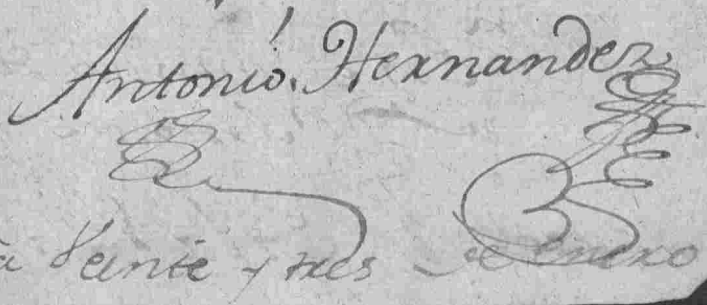 Antonio. Hernandez
a Veinte y tres de Enero